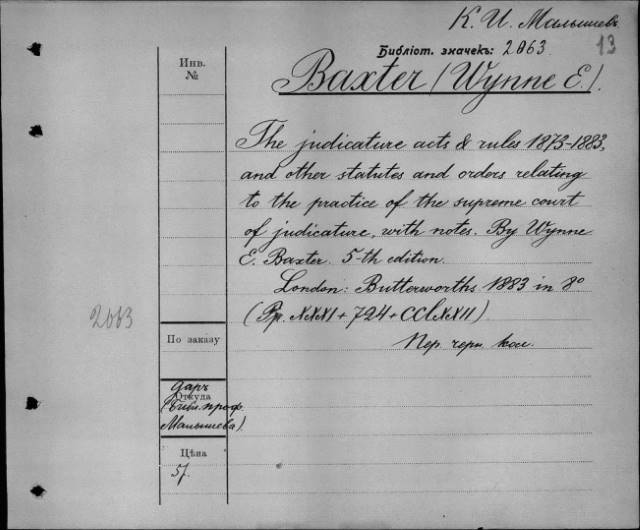 К. И. Малышевъ
Библіот. значекъ: 2063
13
Инв.
№
Baxter (Wynne E.).
The judicature acts & rules 1873-1883,
and other statutes and orders relating
to the practice of the supreme court
of judicature, with notes. By Wynne
E. Baxter. 5-th edition.
London: Butterworths 1883 in 8°
(Pp. XXXI + 724 + CCLXXII)
2063
По заказу
Пер. черн. кол.
Даръ
Откуда
(Библ. проф.
Малышева).
Цѣна